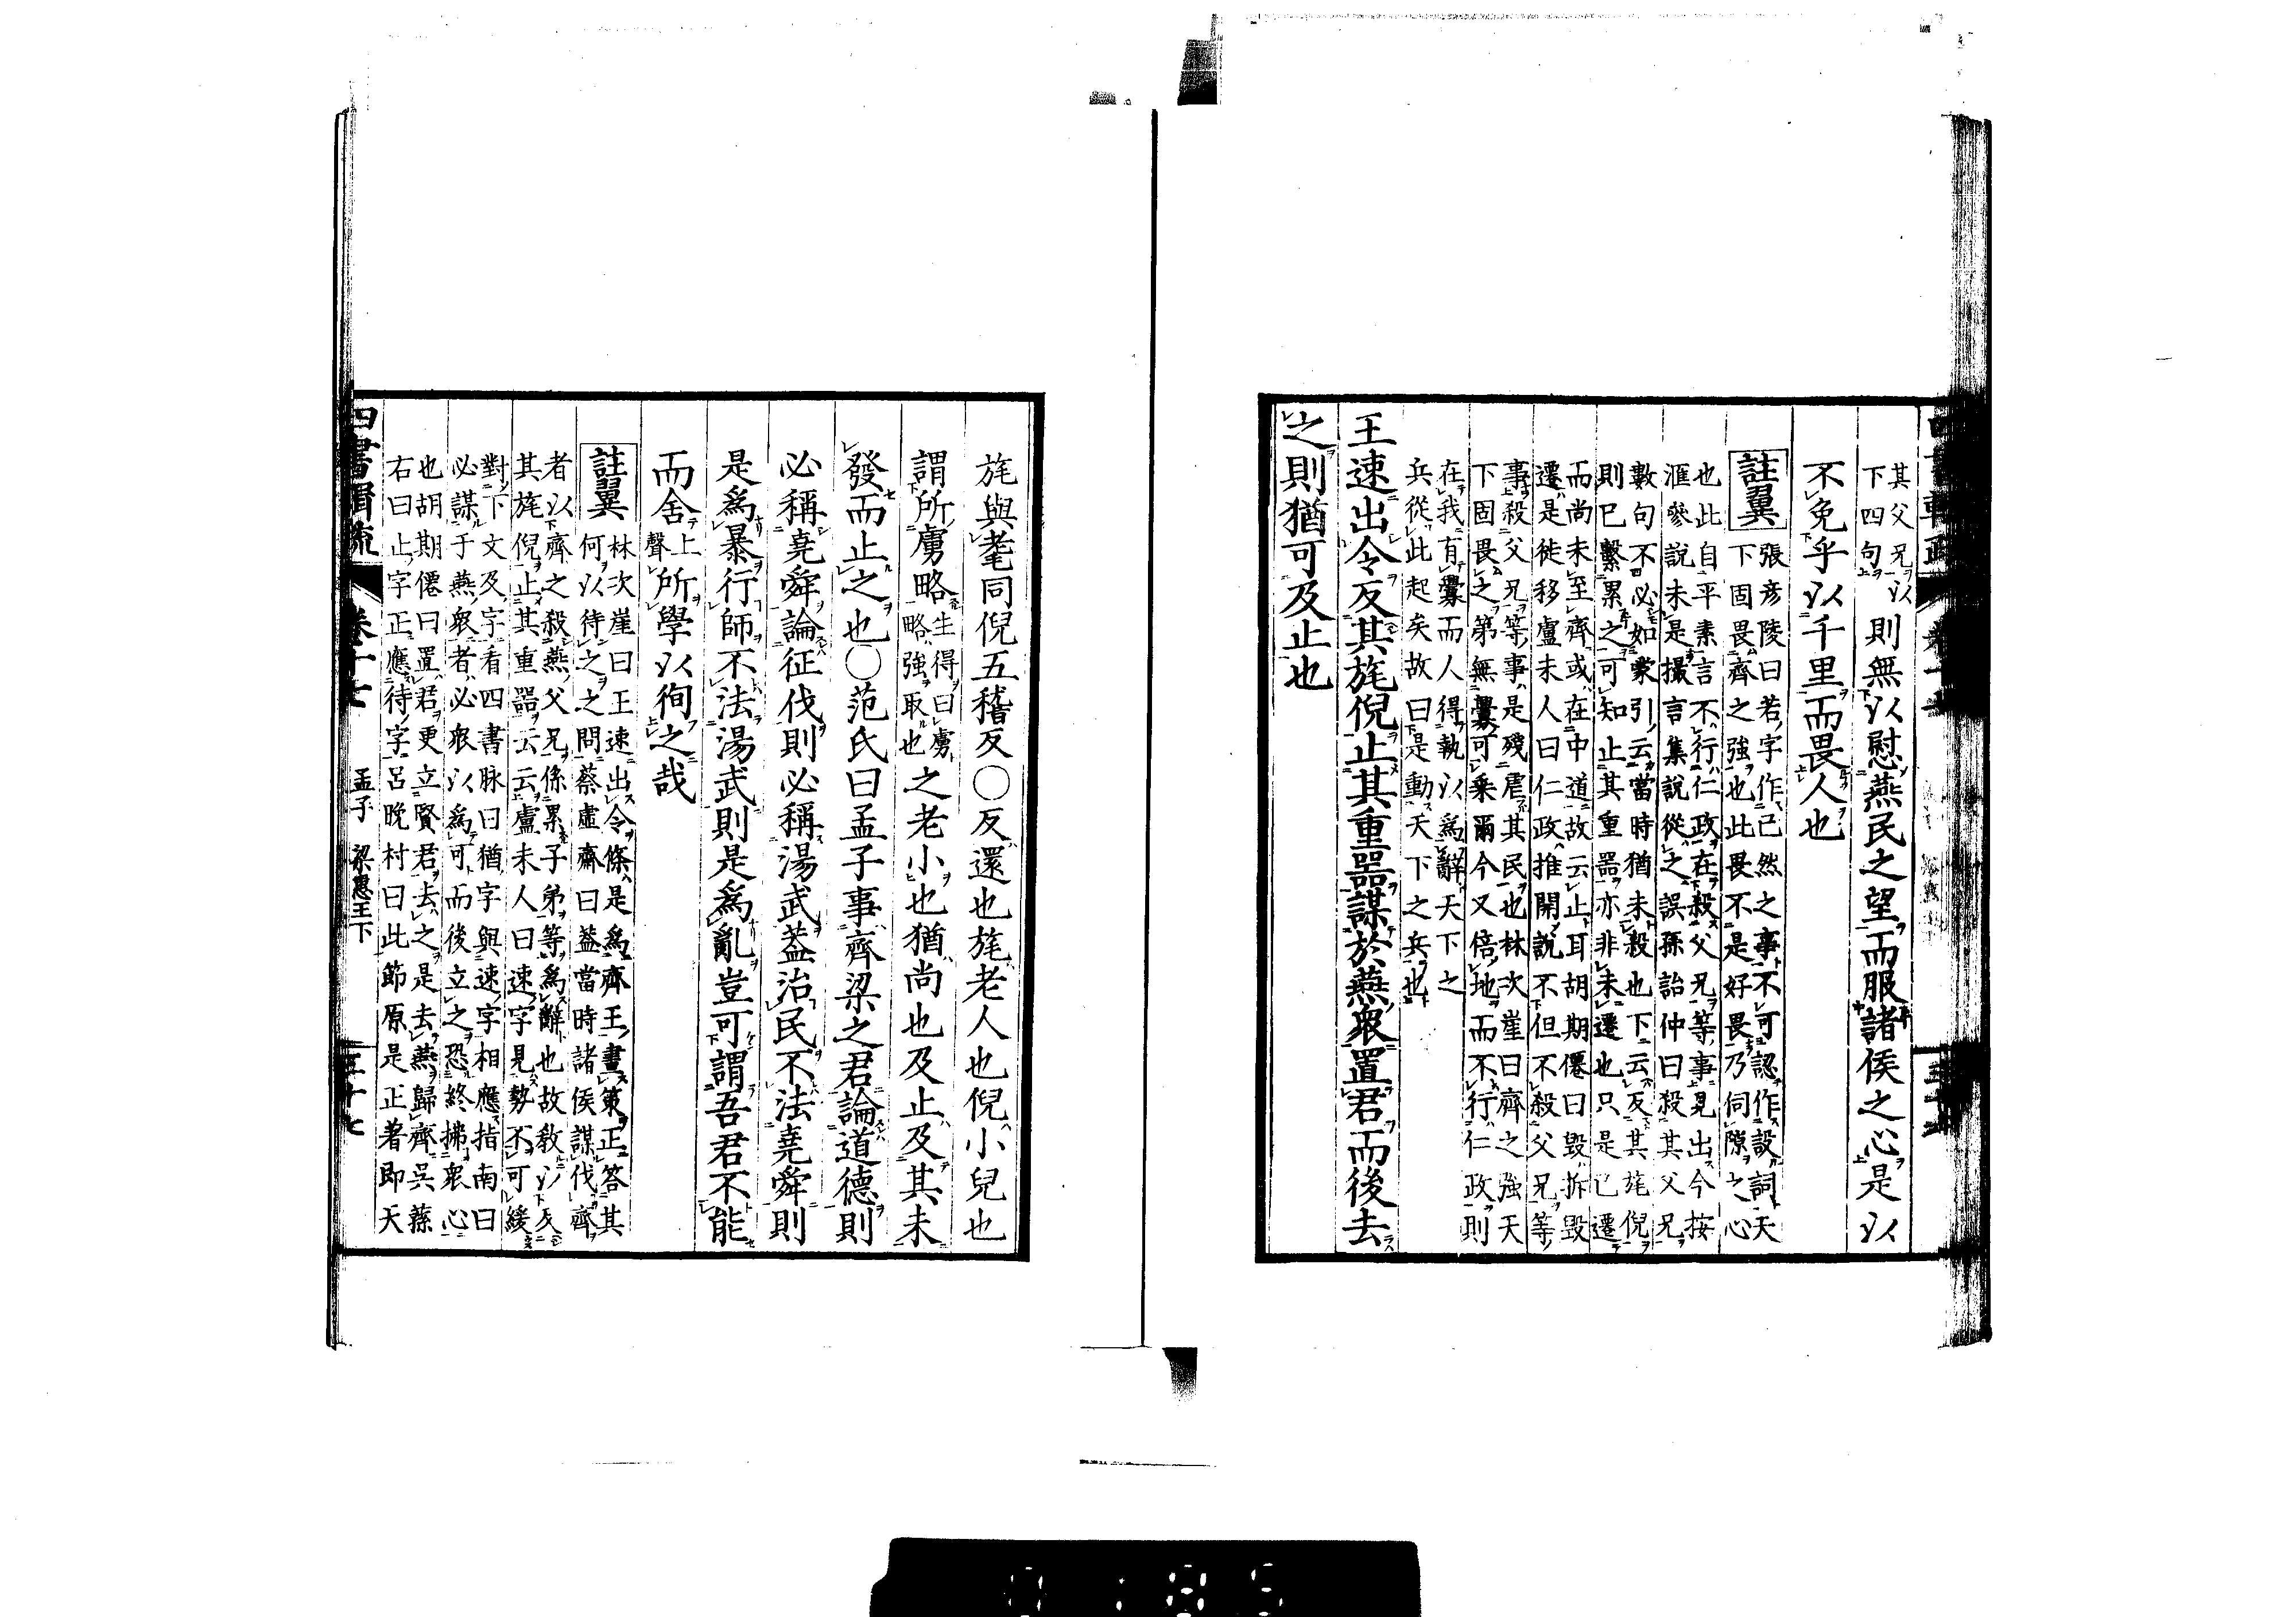 其父兄以
下四句
則無以慰燕民之望而服諸侯之心是以
不免乎以千里而畏人也
註翼
張彦陵曰若字作已然之事不可認作設詞天
下固畏齊之強也此畏不是好畏乃伺隙之心
也此自平素言不行仁政在殺父兄等事見出今按
滙參說未是撮言集說從之誤孫詒仲曰殺其父兄
數句不必如蒙引云當時猶未殺也下云反其旄倪
則已繫累之可知止其重器亦非未遷也只是已遷
而尚未至齊或在中道故云止耳胡期僊曰毀拆毀
遷是徙移盧未人曰仁政推開說不但不殺父兄等
事殺父兄等事是殘虐其民也林次崖曰齊之強天
下固畏之第無釁可乘爾今又倍地而不行仁政則
在我有釁而人得執以為辭天下之
兵從此起矣故曰是動天下之兵也
王速出令反其旄倪止其重器謀於燕衆置君而後去
之則猶可及止也
旄與耄同倪五稽反○反還也旄老人也倪小兒也
謂所虜略
生得曰虜
略強取也
之老小也猶尚也及止及其未
發而止之也○范氏曰孟子事齊梁之君論道德則
必稱堯舜論征伐則必稱湯武葢治民不法堯舜則
是爲暴行師不法湯武則是爲亂豈可謂吾君不能
而舍
上
聲
所學以徇之哉
註翼
林次崖曰王速出令條是為齊王畫策正答其
何以待之之問蔡虛齋曰葢當時諸侯謀伐齊
者以齊之殺燕父兄係累子弟等為辭也故敎以反
其旄倪止其重器云云盧未人曰速字見勢不可緩
對下文及字看四書脉曰猶字與速字相應指南曰
必謀于燕衆者必衆以為可而後立之恐終拂衆心
也胡期僊曰置君更立賢君去之是去燕歸齊呉蓀
右曰止字正應待字呂晚村曰此節原是正著即天
四書輯疏
卷十七
孟子 梁惠王下
三十七